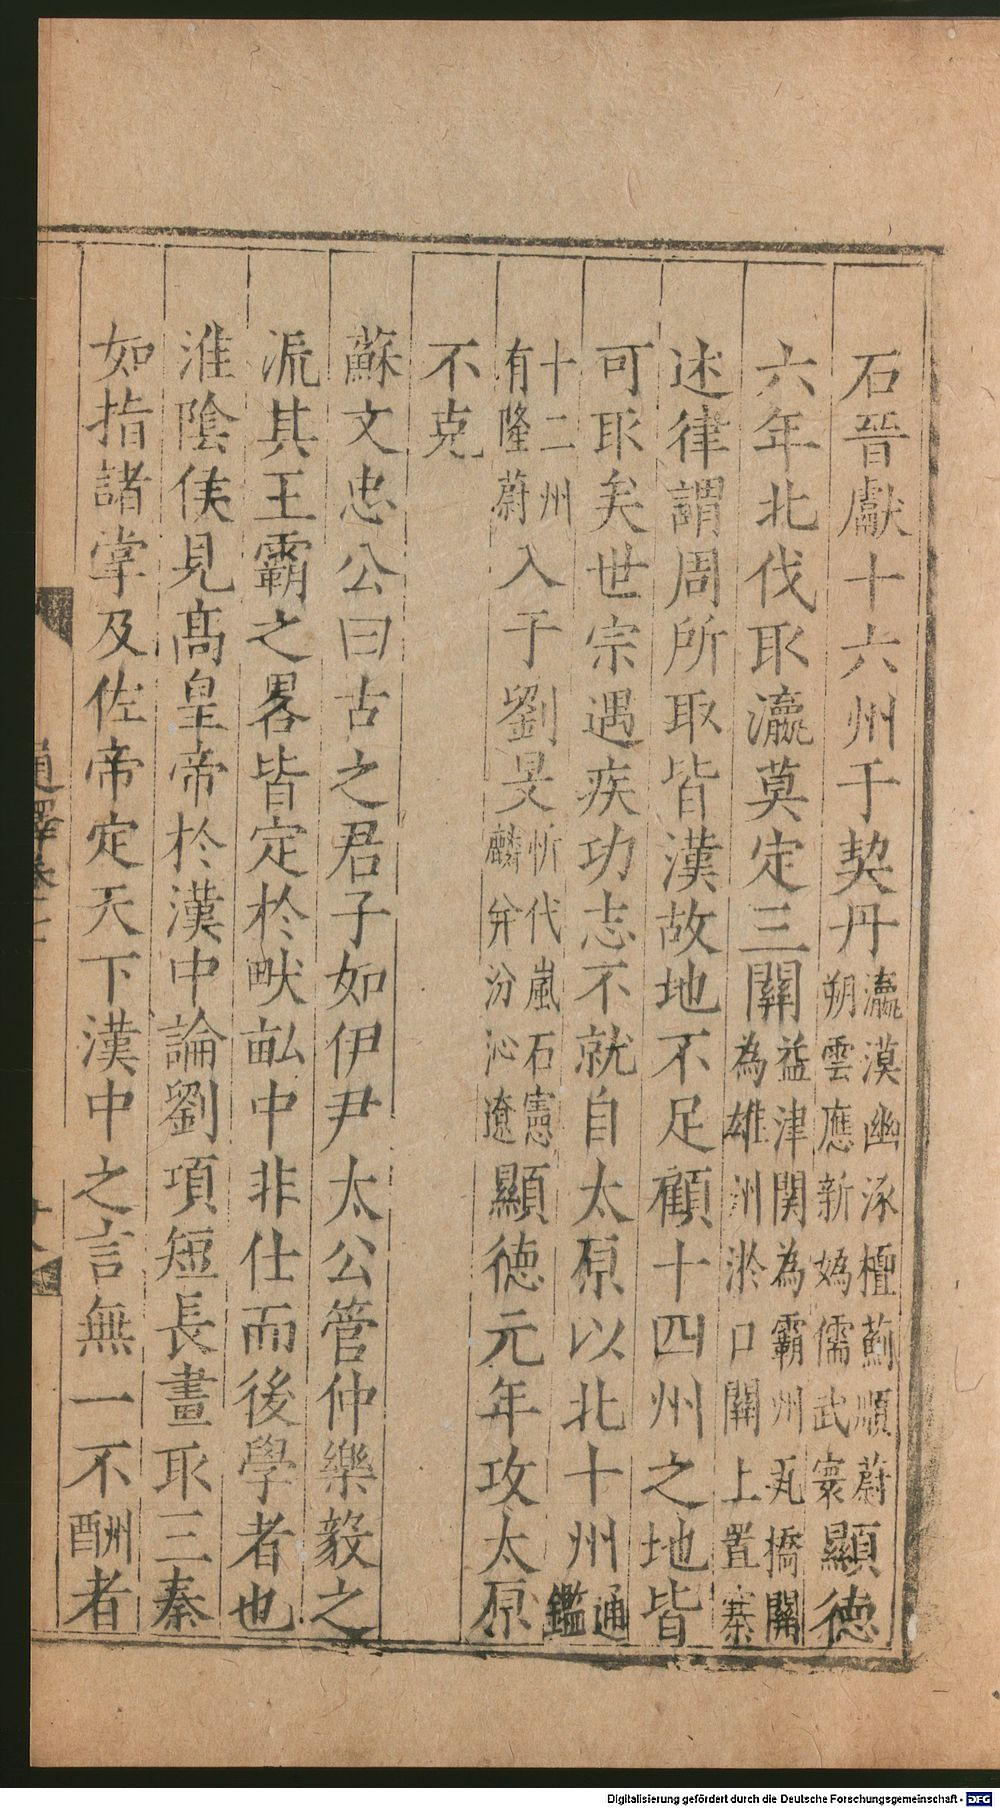 石晉獻十六州于契丹瀛漠幽涿檀薊順蔚朔雲應新媯儒武寰顯德
六年北伐取瀛莫定三關益津關為霸州瓦橋關為雄州淤口關上置寨
述律謂周所取皆漢故地不足顧十四州之地皆
可取矣世宗遇疾功志不就自太原以北十州通鑑
十二州有隆蔚入于劉旻忻代嵐石憲麟幷汾沁遼顯德元年攻太原
不克
蘇文忠公曰古之君子如伊尹太公管仲樂毅之
流其王霸之畧皆定於畎畝中非仕而後學者也
淮陰侯見高皇帝於漢中論劉項短長畫取三秦
如指諸掌及佐帝定天下漢中之言無一不酬者
通釋卷
Digitalisierung gefördert durch die Deutsche Forschungsgemeinschaft - DFG